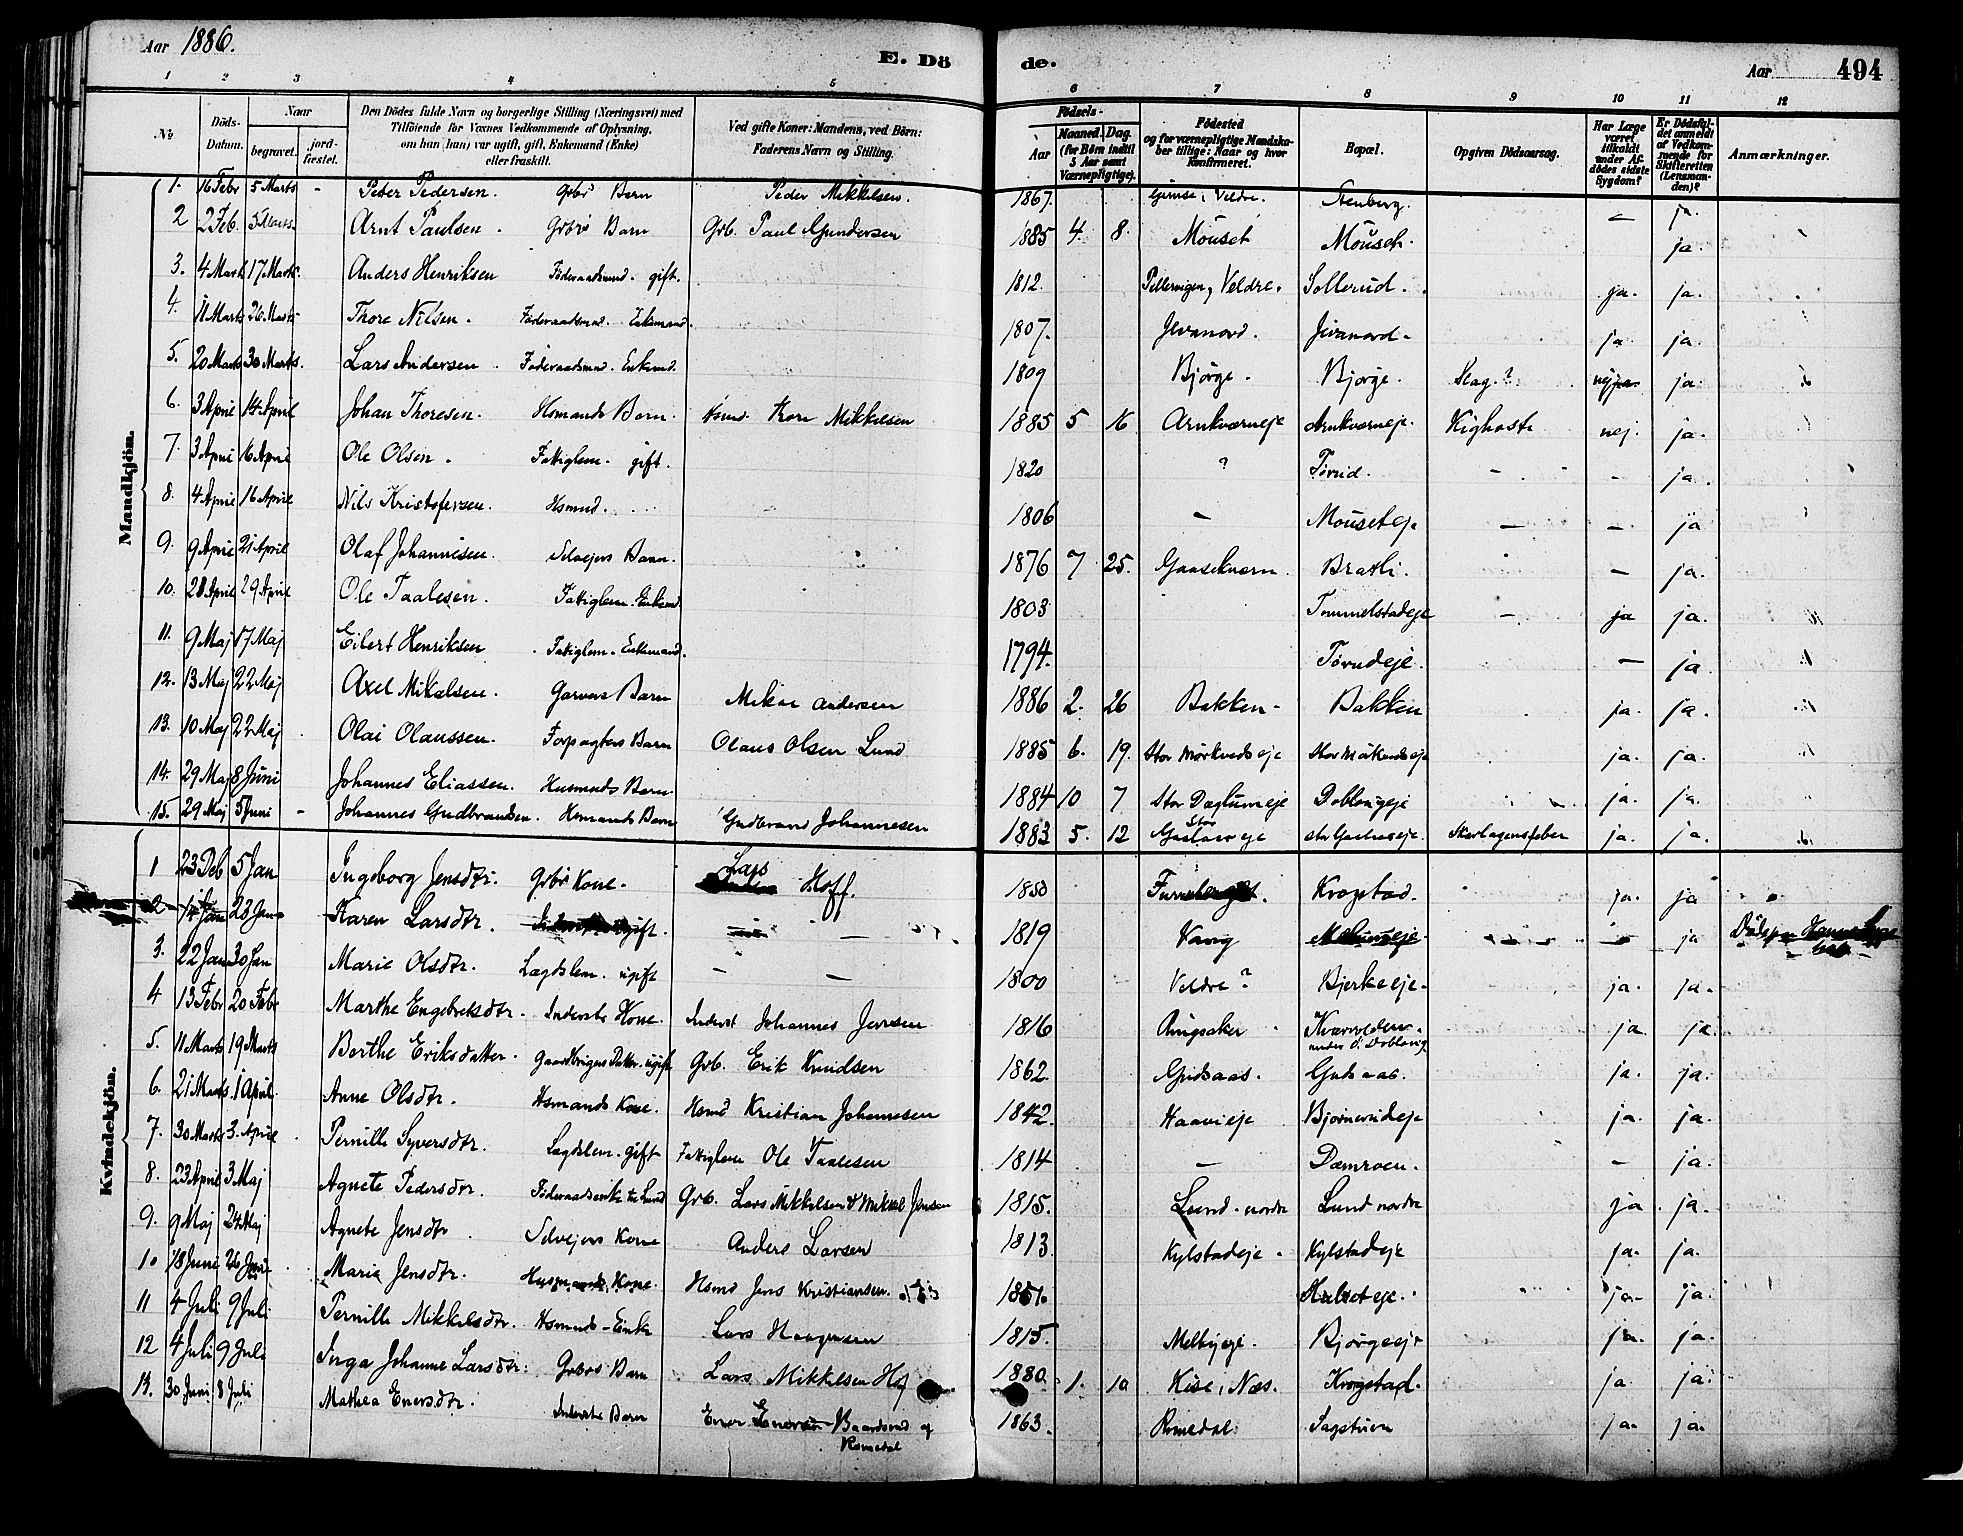 Aar 1886.
E. Dö
de.
Aar
494
1 2 3 4 5 6 7 8 9 10 11 12
No
Döds-Datum.
Naar
begravet.
jord-fæstet.
Den Dödes fulde Navn og borgerlige Stilling (Næringsvei) med
Tilföiende for Voxnes Vedkommende af Oplysning,
om han (hun) var ugift, gift, Enkemand (Enke)
eller fraskilt.
Ved gifte Koner: Mandens, ved Börn:
Faderens Navn og Stilling.
Födsels-
Aar
Maaned. Dag.
(for Börn indtil
5 Aar samt
Værnepligtige).
Födested
og for værnepligtige Mandska-
ber tillige: Naar og hvor
Konfirmeret.
Bopæl.
Opgiven Dödsaarsag.
Har Læge
været
tilkaldt
under Af-
dödes sidste
Sygdom?
Er Dödsfal-
det anmeldt
af Vedkom-
mende for
Skifteretten
(Lensman-
den)?
Anmærkninger.
Mandkjön.
1. 16 Febr 5 Marts - Peder Pedersen. Grbr Barn Peder Mikkelsen. 1867. Gjimse i Veldre. Stenberg. - ja.
2 2 Feb. 5 Marts. Arnt Paulsen. Grbrs Barn Grb. Paul Gundersen 1885 4. 8. Mouset Mouset. ja.
3. 4 Mart 17 Mart. Anders Henriksen Föderaadsmd. gift. 1812. Veldre. Sollerud. ja. ja.
4. 11 Marts 26 Marts Thore Nilsen. Föderaadsmd. Enkemand. 1807. Jevanord. Jevanord. ja. ja.
5. 20 Marts 30 Marts. Lars Andersen Föderaadsmd. Enkemd. 1809 Bjørge. Bjørge. Slag.? nej ja.
6. 3 April 14 April Johan Thoresen. Hsmands Barn. Hsmd. Thore Mikkelsen 1885 5 16 Arnkværneje Arnkværneje. Kighoste nej. ja.
7. 3 April 16 April Ole Olsen. Fattiglem. gift. 1820 ? Tørud. - - ja.
8. 4 April 16 April Nils Kristofersen. Hsmnd. 1806 - Mouseteje - - ja
9. 9 April 21 April Olaf Johannesen. Selvejers Barn. 1876 7 25. Gaasekværn Bratli. - ja.
10. 28 April 29 April Ole Taalesen. Fattiglem. Enkemd. 1803 Tommelstadeje - ja ja.
11. 9 Maj 17 Maj Eilert Henriksen Fattiglem. Enkemand. 1794. Tørudeje. - ja.
12. 13 Maj 22 Maj Axel Mikalsen. Garvers Barn Mikal Andersen 1886 2. 26 Bakken. Bakken ja. ja.
13. 10 Maj 22 Maj Olai Olaussen. Forpagters Barn Olaus Olsen Lund 1885 6. 19. Stor Mörkveds eje Stor Mörkveds eje ja. ja.
14. 29 Maj 8 Juni Johannes Eliassen. Husmnds Barn 1884 10 7 Stor Døglumeje Doblougeje ja. ja.
15. 29 Maj 5 Juni - Johannes Gudbrandsen. Hsmands Barn Gudbrand Johannesen 1883 5. 12 Stor Gaalaaseje str Gaalaaseje. Skarlagensfeber ja. ja.
Kvindekjön.
1 23 Deb 5 Jan Ingeborg Jensdtr. Grbr Kone. Lars Hoff. 1850 Kragstad. ja. ja
2 14 Jan 23 Jan Karen Larsdtr. gift. - 1819 Vang ja
3. 22 Jan 30 Jan Marie Olsdtr. Lægdslem. ugift - - 1800 Veldre? Bjerkeeje. ja. ja.
4 13 Febr 20 Febr Marthe Engebretsdtr. Inderste Kone. Inderst Johannes Jensen 1816 Ringsaker Kværnveden under S. Dobloug ja. ja.
5. 11 Marts 19 Marts Berthe Eriksdatter. Gaardbrugers Datter. ugift Grb. Erik Knudsen 1862 Gudsaas. Gudsaas. ja. ja.
6. 21 Marts 1 April. Anne Olsdtr. Hsmands Kone. Hsmd Kristian Johannesen 1842. Haavieje Bjørnerudeje ja. ja.
7. 30 Marts 3. April Pernille Syversdtr. Lægdslem. gift Fattiglem Ole Taalesen 1814 - Damroen. - ja.
8. 23 April 3 Maj Agnete Pedersdtr. Föderaadsenke til Lund Grb. Lars Mikkelsen & Mikkel Jensen 1815. Lund nordre Lund nordre ja. ja.
9. 9 Maj 24 Maj Agnete Jensdtr. Selvejers Kone Anders Larsen 1813 Kylstadeje. Kylstadeje ja. ja.
10 18 Juni 26 Juni Maria Jensdtr. Husmands Kone. Hsmd Jens Kristiansen. 1851. Halseteje. ja. ja.
11 4 Juli 9 Juli Pernille Mikkelsdtr. Hsmnds-Enke Lars Haagensen 1815. Melbyeje. Bjørgeeje ja. ja.
12 4 Juli 9 Juli Inga Johanne Larsdtr. Grbrs Barn Lars Mikkelsen Hof 1880. 1. 10 Kise, Næs. Kragstad. ja ja.
13. 30 Juni 8 Juli Mathea Enersdtr. Inderste Barn Ener Enersen Baardsrud af Romedal 1863. Romedal. Sagstuen ja. ja.